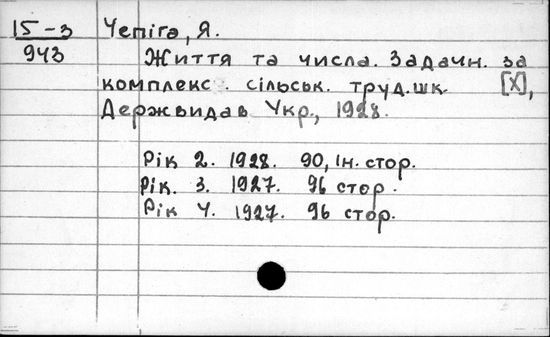 15-3
943
Чепіга, Я.
Життя та числа. Задачн. за
комплекс. сільськ. труд. шк. [Х],
Держвидав Укр., 1928.
Рік 2. 1928. 90, Ін. стор.
Рік. 3. 1927. 96 стор.
Рік 4. 1927. 96 стор.